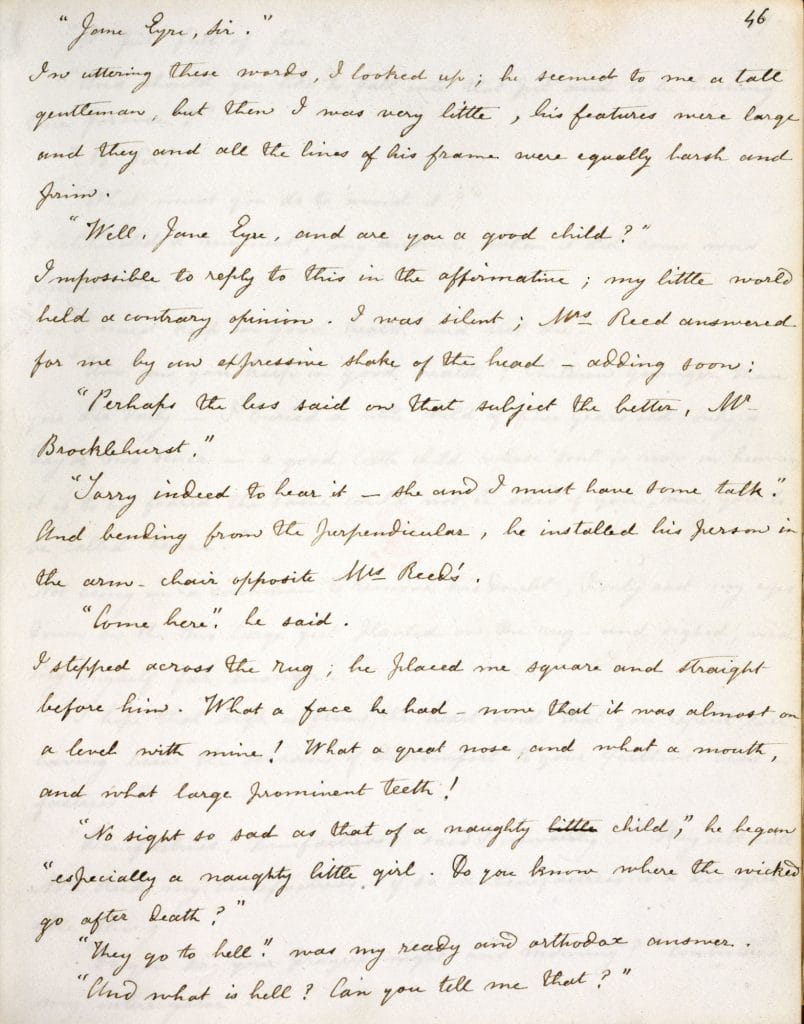 46
"Jane Eyre, sir."
In uttering these words, I looked up; he seemed to me a tall
gentleman, but then I was very little, his features were large
and they and all the lines of his frame were equally harsh and
prim.
"Well, Jane Eyre, and are you a good child?"
Impossible to reply to this in the affirmative; my little world
held a contrary opinion. I was silent; Mrs Reed answered
for me by an expressive shake of the head – adding soon:
"Perhaps the less said on that subject the better, Mr
Brocklehurst."
"Sorry indeed to hear it – she and I must have some talk".
And bending from the perpendicular, he installed his person in
the arm-chair opposite Mrs Reed's.
"Come here". he said.
I stepped across the rug; he placed me square and straight
before him. What a face he had – now that it was almost on
a level with mine! What a great nose, and what a mouth,
and what large prominent teeth!
"No sight so sad as that of a naughty little child," he began
"especially a naughty little girl. Do you know where the wicked
go after death?"
"They go to hell". was my ready and orthodox answer.
"And what is hell? Can you tell me that?"